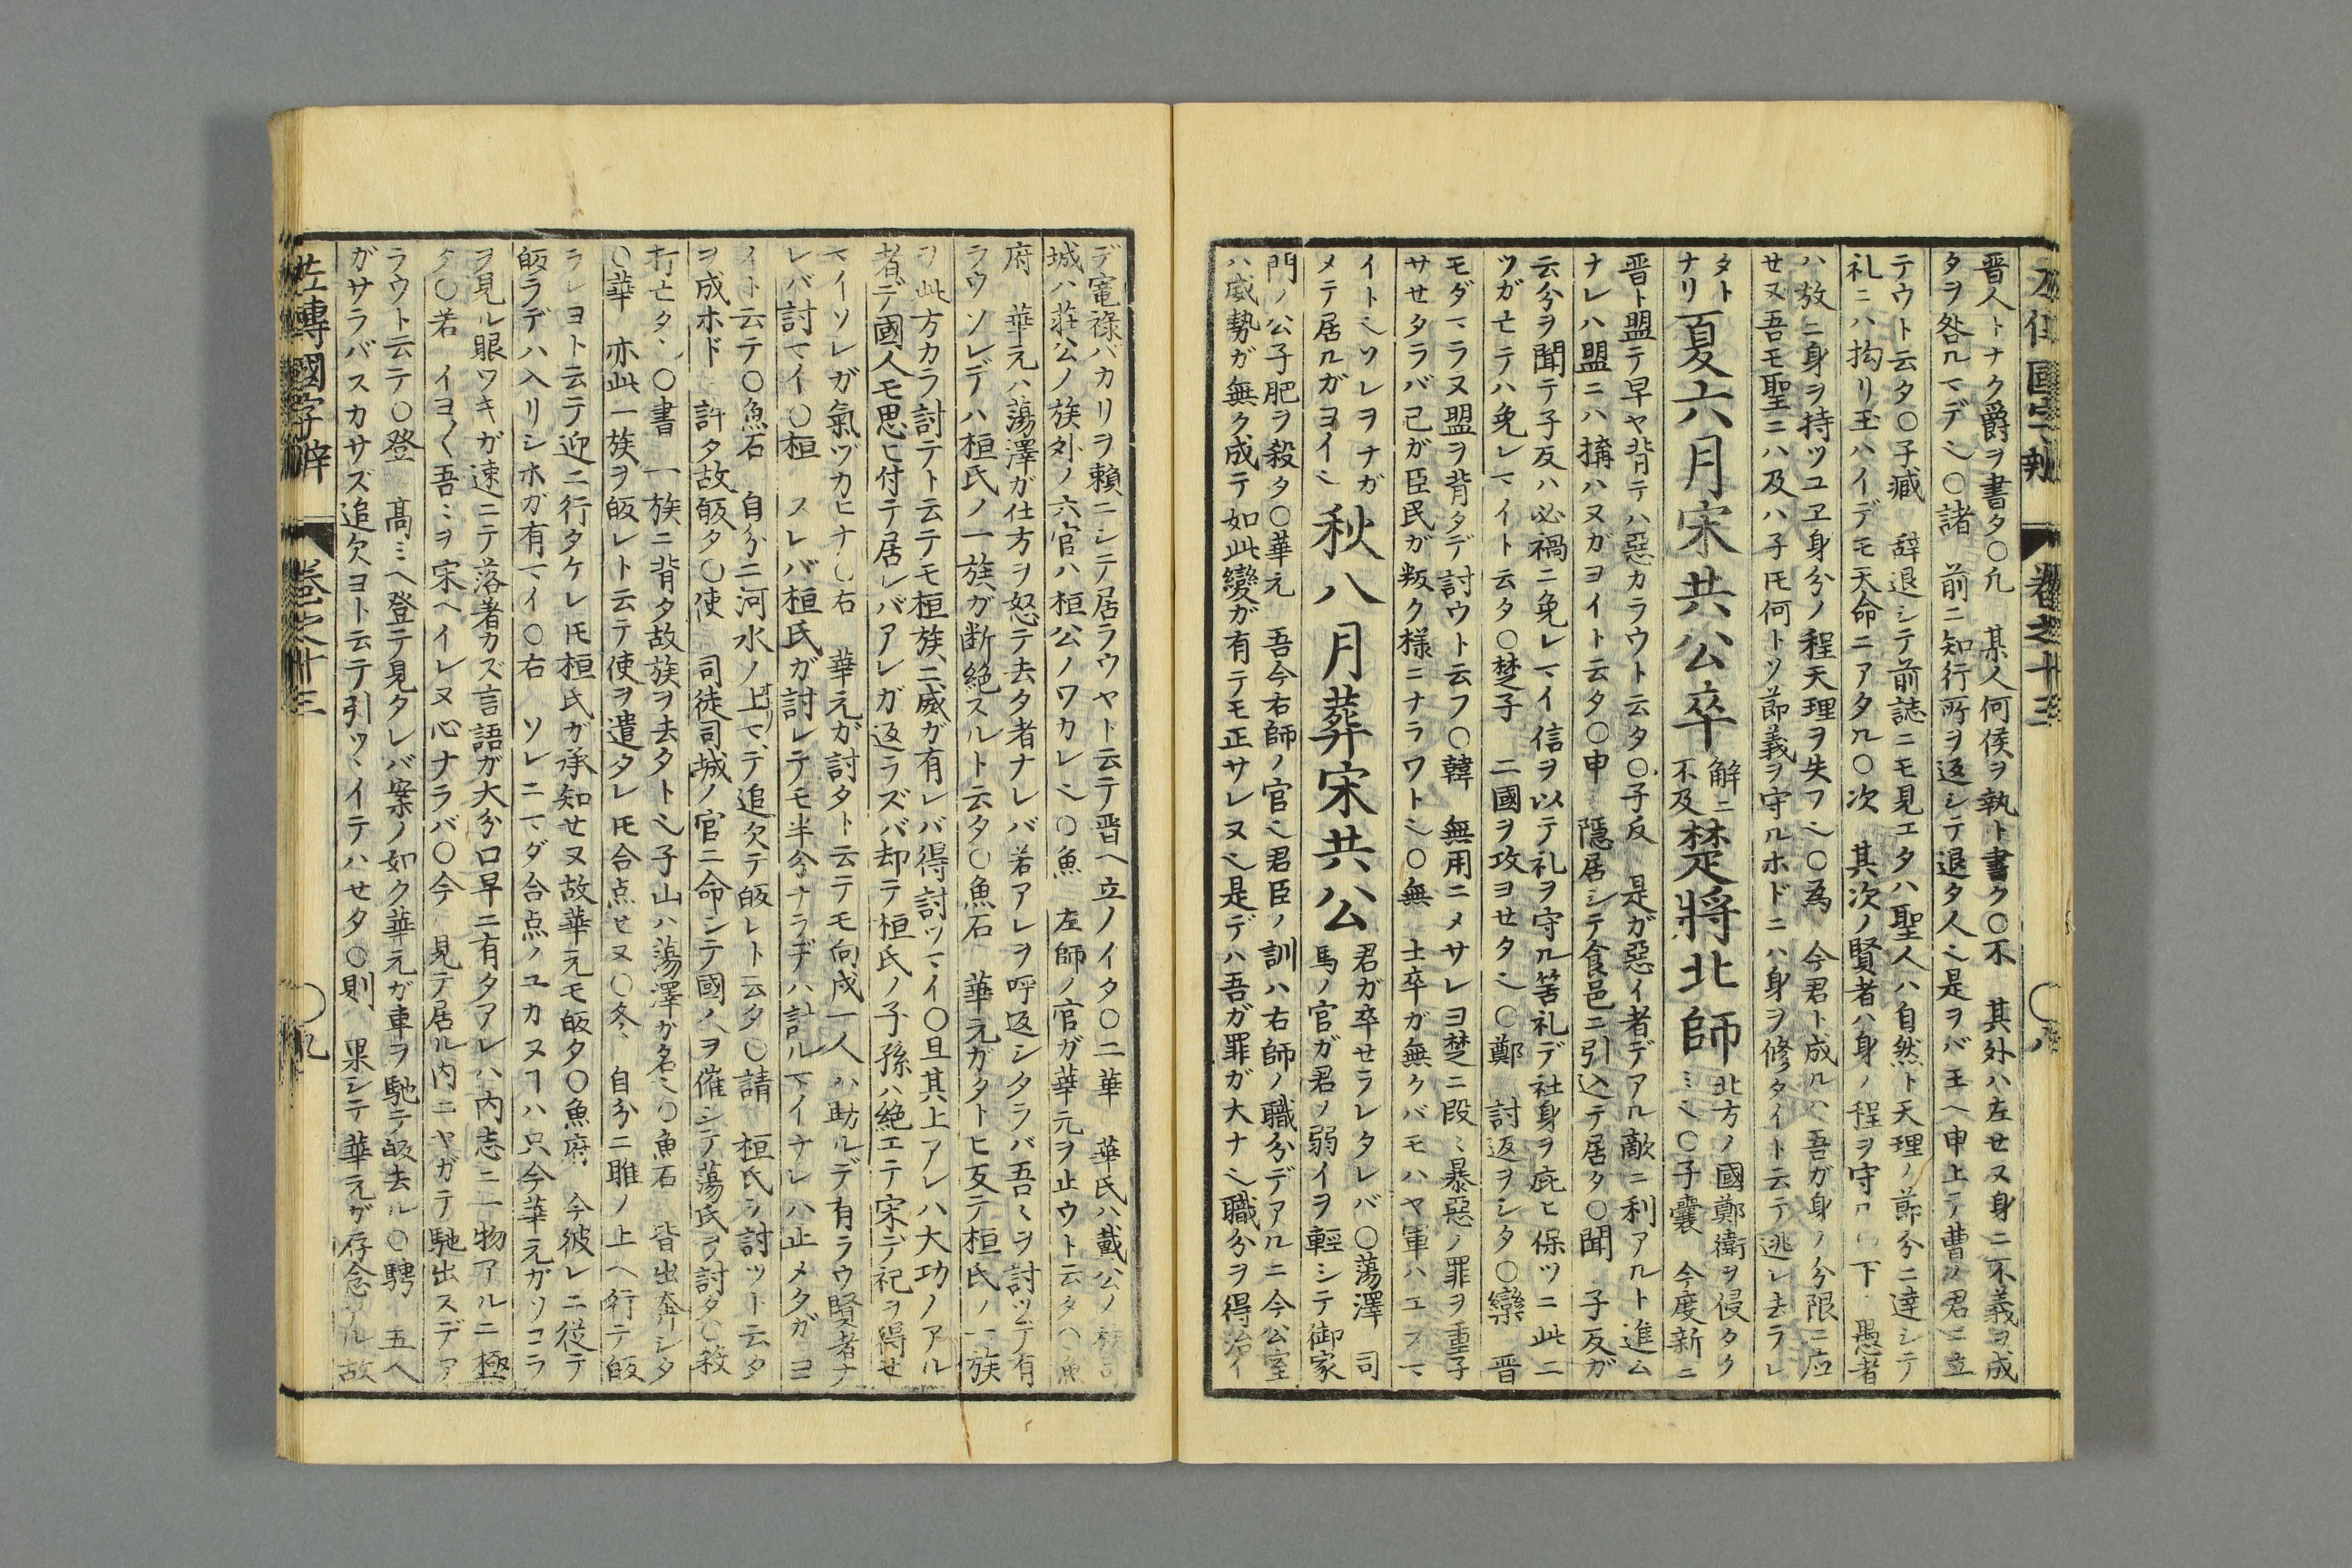 晋人トナク爵ヲ書タ○凡　某人何侯ヲ執ト書ク○不　其外ハ左セヌ身ニ不義ヲ成
タヲ咎ルマデ也○諸　前ニ知行所ヲ返シテ退タ人也是ヲバ王ヘ申上テ曹ノ君ニ立
テウト云タ○子臧　辞退シテ前誌ニモ見エタハ聖人ハ自然ト天理ノ節分ニ達シテ
礼ニハ拘リ玉ハイデモ天命ニアタル○次　其次ノ賢者ハ身ノ程ヲ守ル○下　愚者
ハ放ニ身ヲ持ツユヱ身分ノ程天理ヲ失フ也○為　今君ト成ルハ吾ガ身ノ分限ニ應
セヌ吾モ聖ニハ及ハ子モ何トソ節義ヲ守ルホドニハ身ヲ修タイト云テ逃レ去ラレ
タト
ナリ夏六月宋共公卒解ニ
不及楚將北師北方ノ國鄭衛ヲ侵タク
ミ也○子嚢　今度新ニ
晋ト盟テ早ヤ背テハ惡カラウト云タ○子反　是ガ惡イ者デアル敵ニ利アルト進ム
ナレハ盟ニハ搆ハヌガヨイト云タ○申　隠居シテ食邑ニ引込テ居タ○聞　子反ガ
云分ヲ聞テ子反ハ必禍ニ免レマイ信ヲ以テ礼ヲ守ル筈礼デ社身ヲ庇ヒ保ツニ此二
ツガ亡テハ免レマイト云タ○楚子　二國ヲ攻ヨセタ也○鄭　討返ヲシタ○欒　晋
モダマラヌ盟ヲ背タデ討ウト云フ○韓　無用ニメサレヨ楚ニ段〻暴惡ノ罪ヲ重子
サセタラバ己ガ臣民ガ叛ク様ニナラワト也○無　士卒ガ無クバモハヤ軍ハエスマ
イト也ソレヲナガ
メテ居ルガヨイ也秋八月葬宋共公君ガ卒セラレタレバ○蕩澤　司
馬ノ官ガ君ノ弱イヲ輕シテ御家
門ノ公子肥ヲ殺タ○華元　吾今右師ノ官也君臣ノ訓ハ右師ノ職分デアルニ今公室
ハ威勢ガ無ク成テ如此變ガ有テモ正サレヌ也是デハ吾ガ罪ガ大ナ也職分ヲ得治イ
卷之十三
デ寵祿バカリヲ頼ニシテ居ラウヤト云テ晋ヘ立ノイタ○二華　華氏ハ戴公ノ族司
城ハ莊公ノ族外ノ六官ハ桓公ノワカレ也○魚　左師ノ官ガ華元ヲ止ウト云タ○魚
府　華元ハ蕩澤ガ仕方ヲ怒テ去タ者ナレバ若アレヲ呼返シタラバ吾〻ヲ討ツデ有
ラウソレデハ桓氏ノ一族ガ断絶スルト云タ○魚石　華元ガタトヒ反テ桓氏ノ一族
ヲ此方カラ討テト云テモ桓族ニ威ガ有レバ得討ツマイ○且其上アレハ大功ノアル
者デ國人モ思ヒ付テ居レバアレガ返ラズバ却テ桓氏ノ子孫ハ絶エテ宋デ祀ヲ得セ
マイソレガ氣ヅカヒナ○右　華元ガ討タト云テモ向戌一人ハ助ルデ有ラウ賢者ナ
レバ討マイ○桓　スレバ桓氏ガ討レテモ半分ナラデハ討ルマイナレハ止メタガヨ
イト云テ○魚石　自分ニ河水ノ上マデ追欠テ皈レト云タ○請　桓氏ヲ討ツト云タ
ヲ成ホド　許タ故皈タ○使　司徒司城ノ官ニ命シテ國人ヲ催シテ蕩氏ヲ討タ○殺
打亡タ○書　一族ニ背タ故族ヲ去タト也子山ハ蕩澤ガ名也○魚石　皆出奔シタ
○華　亦此一族ヲ皈レト云テ使ヲ遣タレ𪜈合点セヌ○冬　自分ニ睢ノ上ヘ行テ皈
ラレヨト云テ迎ニ行タケレ𪜈桓氏ガ承知セヌ故華元モ皈タ○魚府　今彼レニ從テ
皈ラデハ入リシホガ有マイ○右　ソレニマダ合点ノユカヌヿハ只今華元ガソコラ
ヲ見ル眼ツキガ速ニテ落著カズ言語ガ大分口早ニ有タアレハ内志ニ一物アルニ極
タ○若　イヨ〱吾〻ヲ宋ヘイレヌ心ナラバ○今　見テ居ル内ニヤガテ馳出スデア
ラウト云テ○登　髙ミヘ登テ見タレバ案ノ如ク華元ガ車ヲ馳テ皈去ル○騁　五人
ガサラバスカサズ追欠ヨト云テ引ツヾイテハセタ○則　果シテ華元ガ存念アル故
左傳國字辯　卷之十三　○九